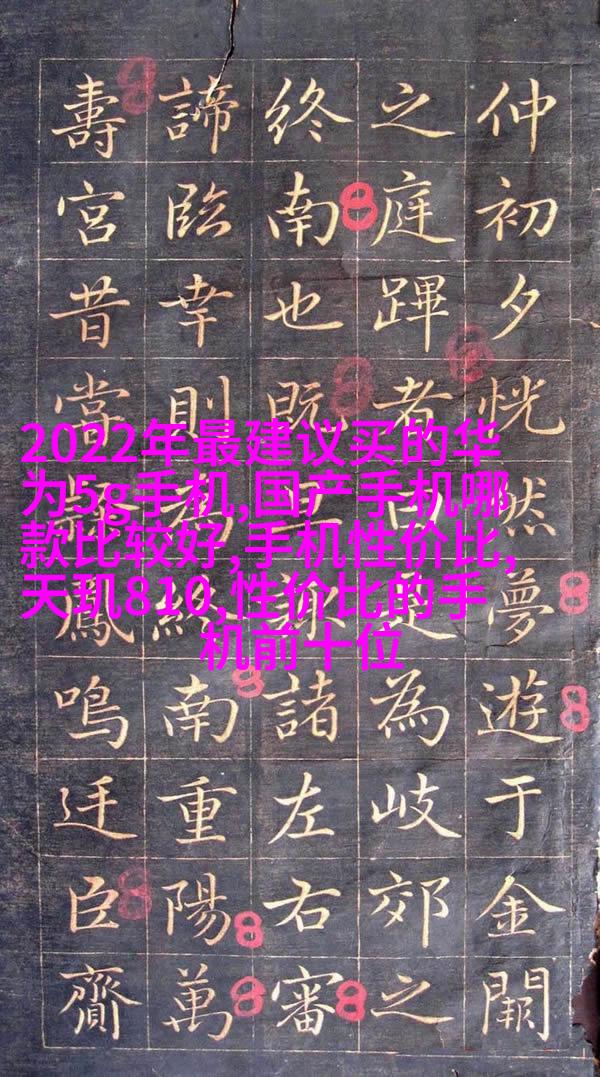 2022年最建议买的华
为5g手机,国产手机哪
款比较好,手机性价比,
天玑810,性价比的手
机前十位
仲初夕恍然夢遊于金闕
之庭蹕者曰是為岐郊之
終南也既諸左右審
諦臨幸則為終南重陽萬
壽宮昔鳳鳴廷臣齎